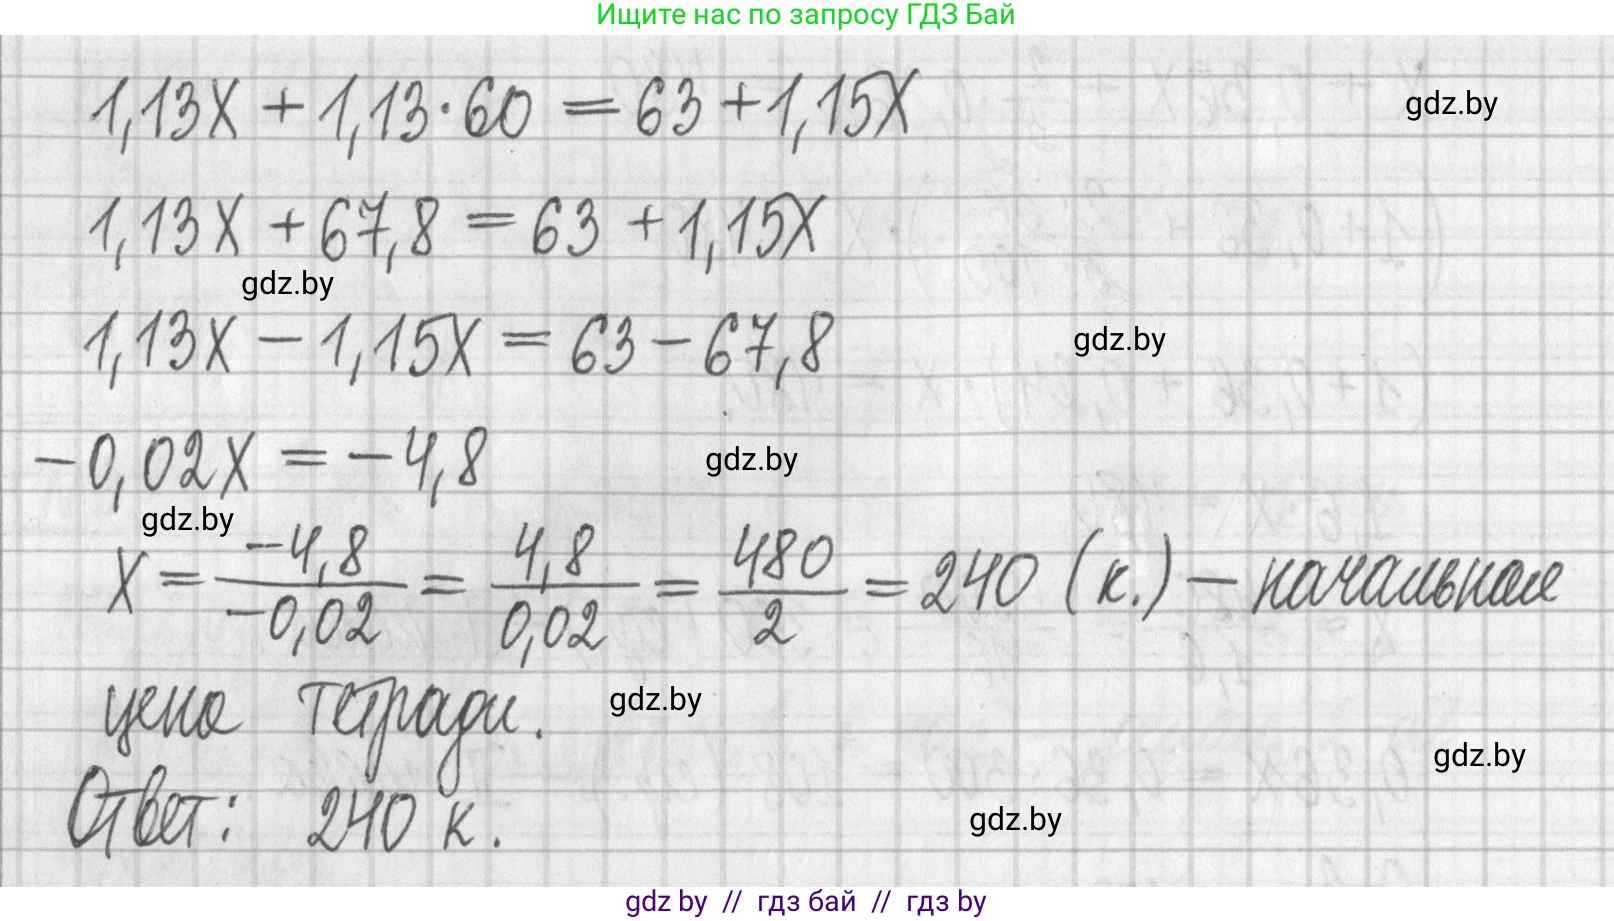 Ищите нас по запросу ГДЗ Бай
1,13x + 1,13·60 = 63 + 1,15x
gdz.by
1,13x + 67,8 = 63 + 1,15x
gdz.by
1,13x − 1,15x = 63 − 67,8
gdz.by
−0,02x = −4,8
gdz.by
gdz.by
x = −4,8/−0,02 = 4,8/0,02 = 480/2 = 240 (к.) − начальная
цена тетради.
gdz.by
gdz.by
Ответ: 240 к.
gdz.by
gdz.by // гдз бай // гдз by